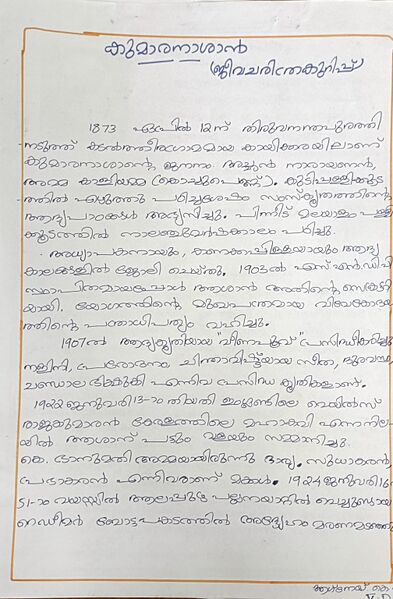 കുമാരനാശാൻ
(ജീവചരിത്രകുറിപ്പ്)
1873 ഏപ്രിൽ 12ന് തിരുവനന്തപുരത്തി
നടുത്ത് കടൽത്തീരഗ്രാമമായ കായിക്കരയിലാണ്
കുമാരനാശാന്റെ ജനനം. അച്ഛൻ നാരായണൻ,
അമ്മ കാളിയമ്മ (കൊച്ചുപെണ്ണ്). കുടിപ്പള്ളിക്കൂട
ത്തിൽ എഴുത്തു പഠിച്ചശേഷം സംസ്കൃതത്തിന്റെ
ആദ്യപാഠങ്ങൾ അഭ്യസിച്ചു. പിന്നീട് മലയാളം പള്ളി
ക്കൂടത്തിൽ നാലഞ്ചുവർഷക്കാലം പഠിച്ചു.
അധ്യാപകനായും, കണക്കപ്പിള്ളയായും ആദ്യ
കാലങ്ങളിൽ ജോലി ചെയ്തു. 1903ൽ എസ്.എൻ.ഡി.പി
സ്ഥാപിതമായപ്പോൾ ആശാൻ അതിന്റെ സെക്രട്ടറി
യായി. യോഗത്തിന്റെ മുഖപത്രമായ വിവേകോദയ
ത്തിന്റെ പത്രാധിപത്യം വഹിച്ചു.
1907ൽ ആദ്യകൃതിയായ "വീണപൂവ്" പ്രസിദ്ധീകരിച്ചു
നളിനി, പ്രരോദനം, ചിന്താവിഷ്ടയായ സീത, ദുരവസ്ഥ,
ചണ്ഡാല ഭിക്ഷുകി എന്നിവ പ്രസിദ്ധ കൃതികളാണ്.
1922 ജനുവരി 13-ാം തിയതി ഇംഗ്ലണ്ടിലെ വെയിൽസ്
രാജകുമാരൻ കേരളത്തിലെ മഹാകവി എന്ന നില
യിൽ ആശാന് പട്ടും വളയും സമ്മാനിച്ചു.
കെ. ഭാനുമതി അമ്മയായിരുന്നു ഭാര്യ. സുധാകരൻ,
പ്രഭാകരൻ എന്നിവരാണ് മക്കൾ. 1924 ജനുവരി 16
51-ാം വയസ്സിൽ ആലപ്പുഴ പല്ലനയാറ്റിൽ വെച്ചുണ്ടായ
റെഡീമർ ബോട്ടപകടത്തിൽ അദ്ദേഹം മരണമടഞ്ഞു
V-D